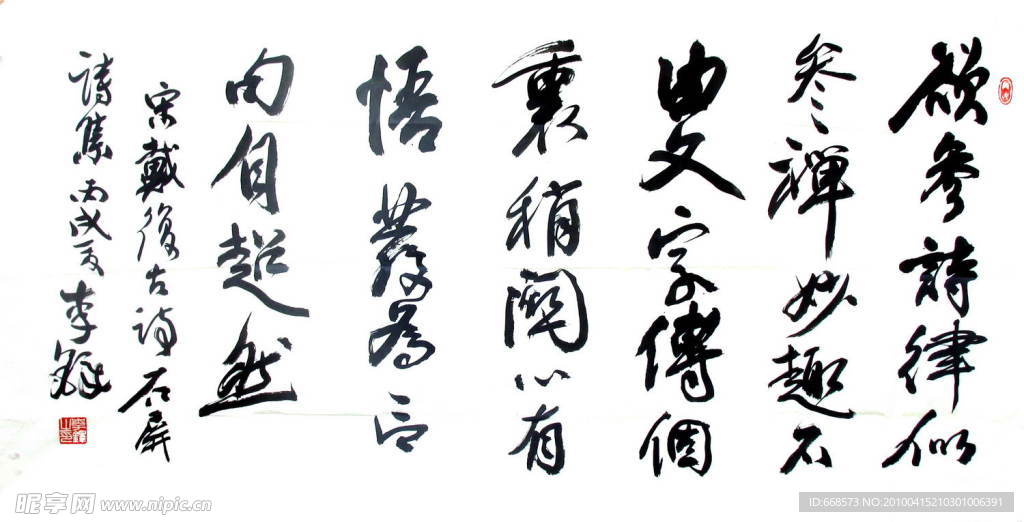 欲參詩律似
参禪妙趣不
由文字傳個
裏稍關心有
悟發為言
句自超然
宋戴復古詩石屏
詩集丙戌夏李
昵享网 www.nipic.cn
ID:668573 NO:20100415210301006391